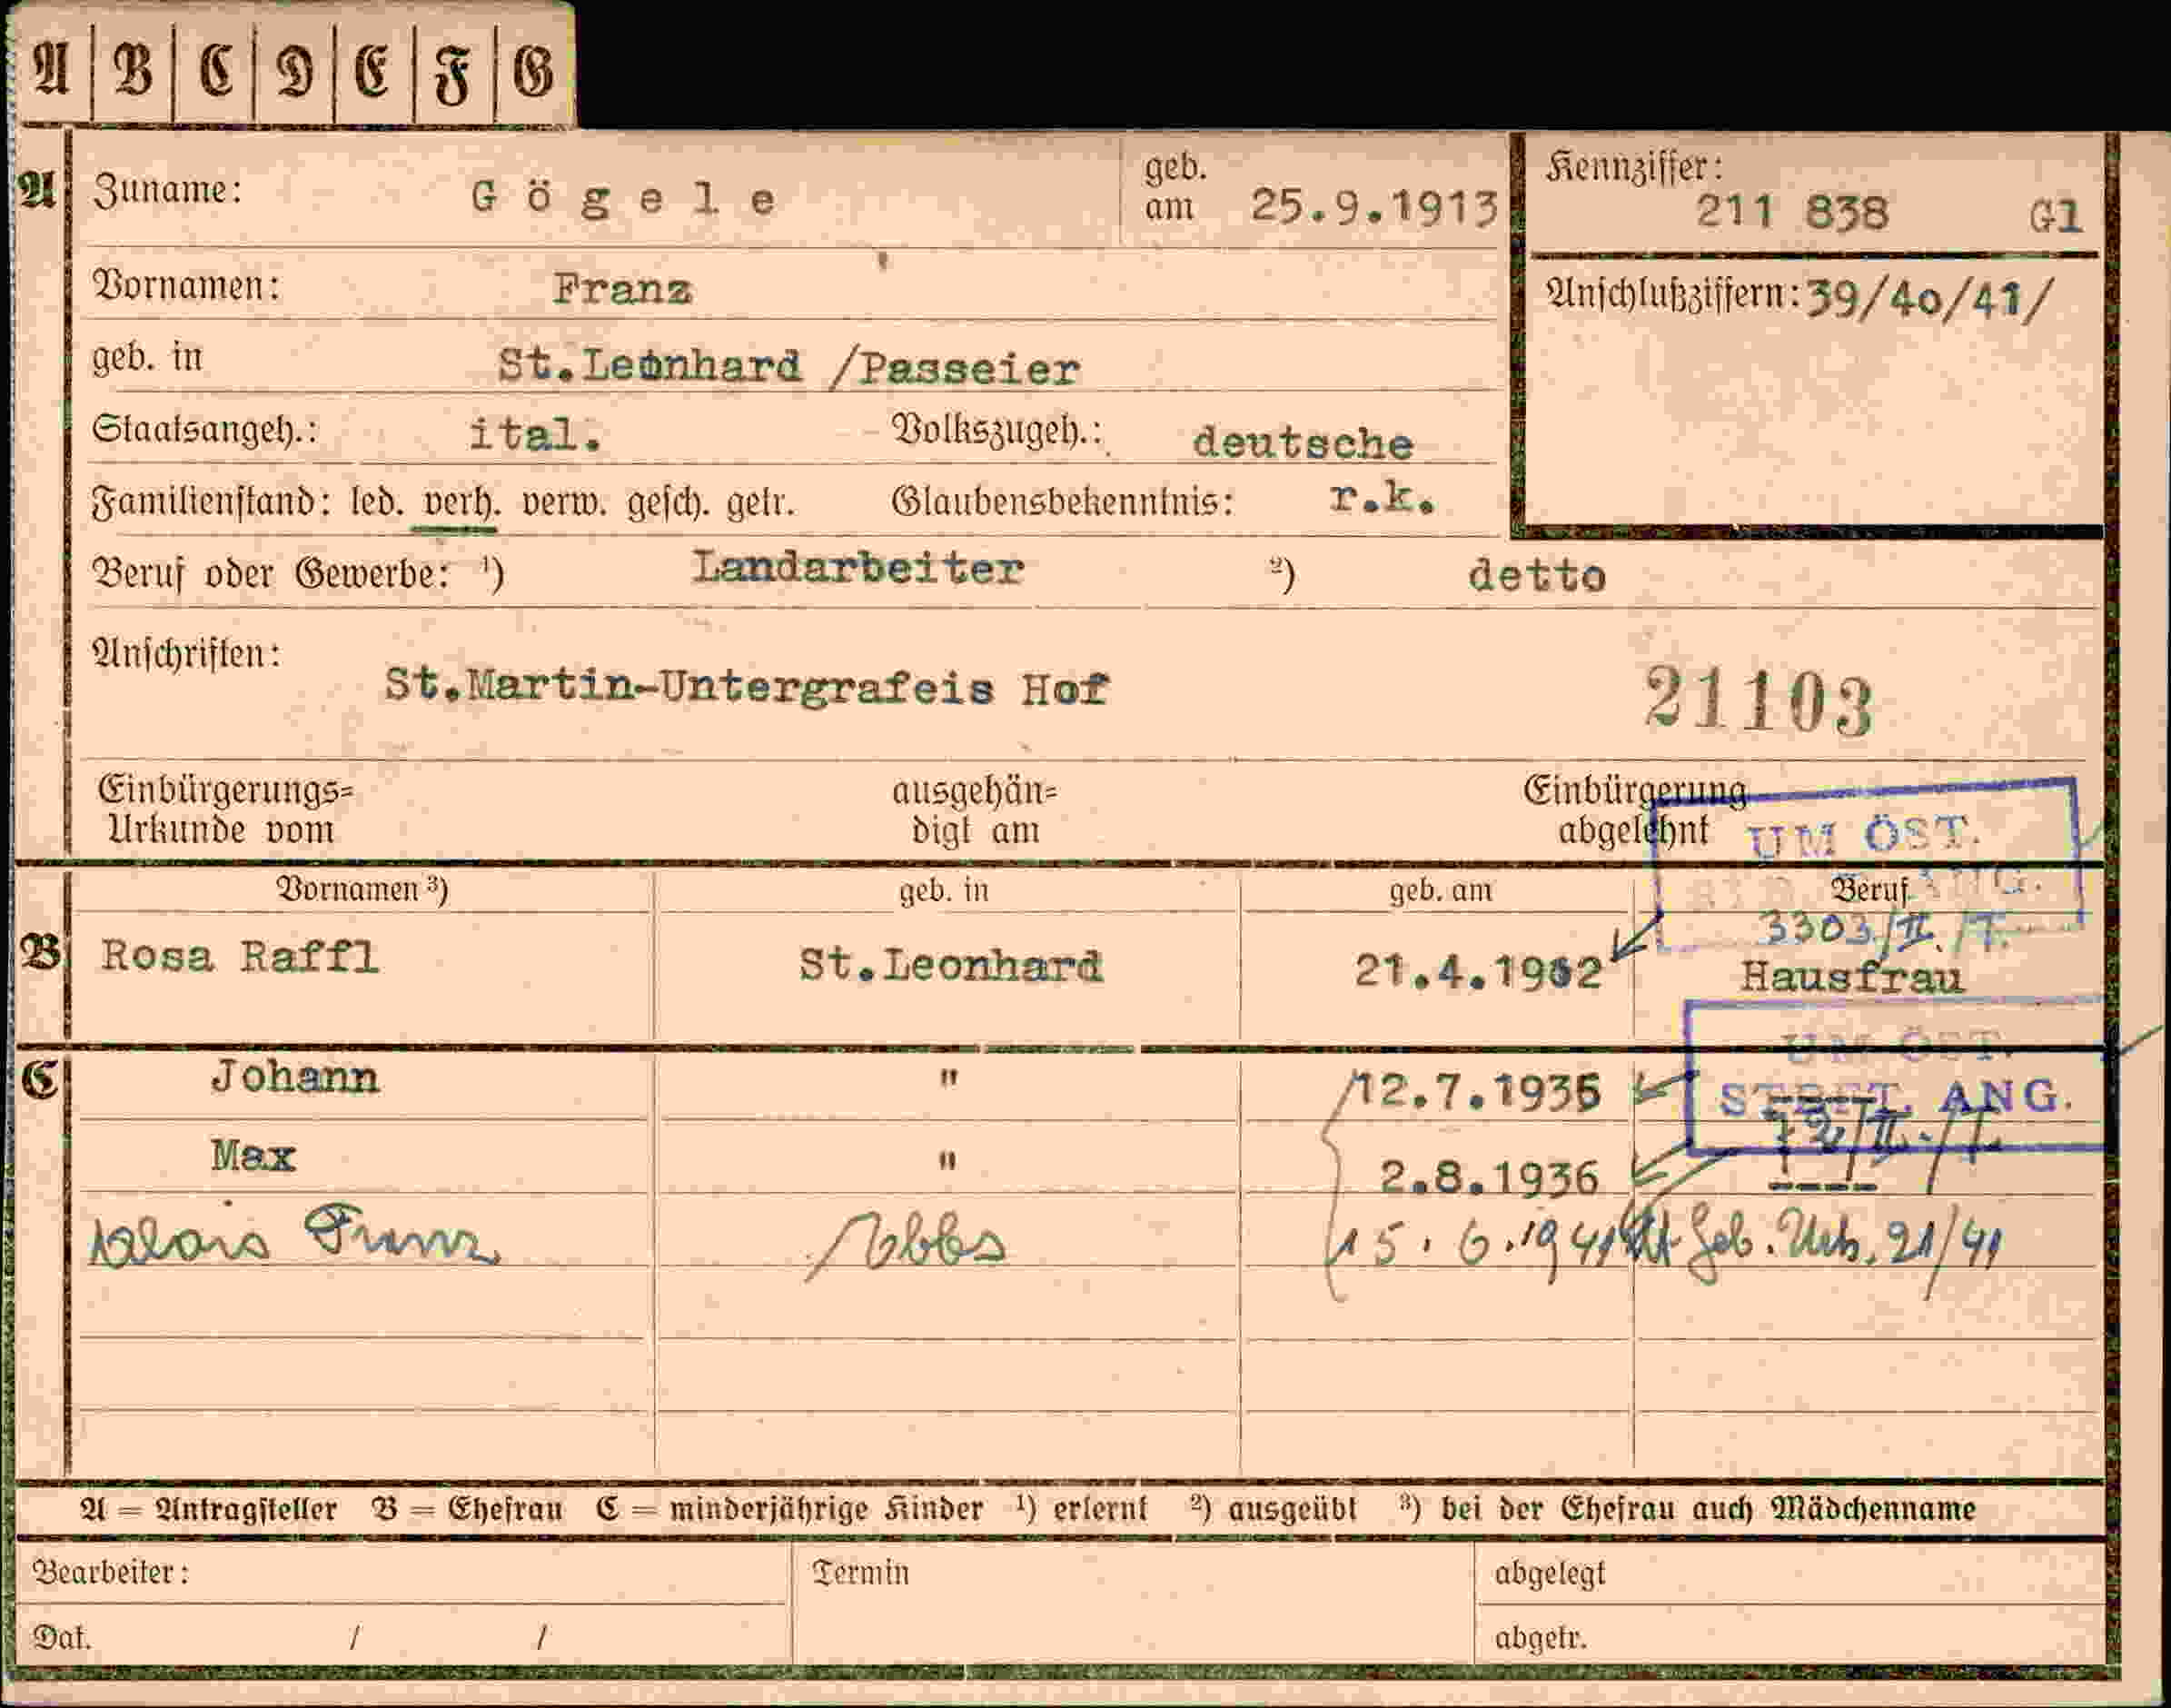 A B C D E F G
A Zuname: Gögele geb. am 25.9.1913 Kennziffer: 211 838 Gl
Vornamen: Franz Anschlußziffern: 39/40/41/
geb. in St.Leonhard /Passeier
Staatsangeh.: ital. Volkszugeh.: deutsche
Familienstand: led. verh. verw. gesch. getr. Glaubensbekenntnis: r.k.
Beruf oder Gewerbe: ¹) Landarbeiter ²) detto
Anschriften: St.Martin-Untergrafeis Hof 21103
Einbürgerungs= ausgehän= Einbürgerung
Urkunde vom digt am abgelehnt UM ÖST.
Vornamen ³) geb. in geb. am Beruf
3303/II./T.
B Rosa Raffl St.Leonhard 21.4.19 2 Hausfrau
UM ÖST.
C Johann " 12.7.1935 ANG.
Max " 2.8.1936
Alois Franz Ybbs 15.6.1941 Geb. Urk. 21/41
A = Antragsteller B = Ehefrau C = minderjährige Kinder ¹) erlernt ²) ausgeübt ³) bei der Ehefrau auch Mädchenname
Bearbeiter: Termin abgelegt
Dat. / / abgetr.